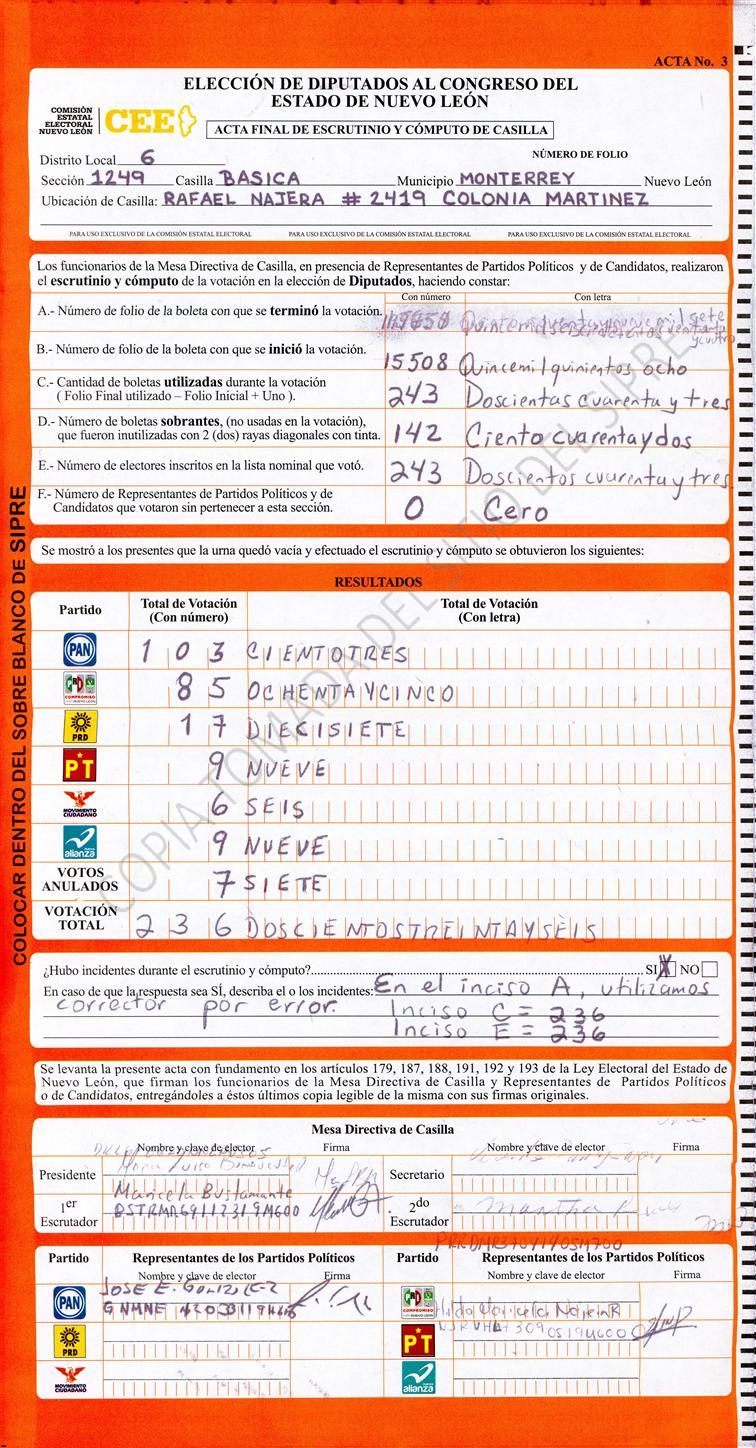 ACTA No. 3
ELECCIÓN DE DIPUTADOS AL CONGRESO DEL
ESTADO DE NUEVO LEÓN
COMISIÓN
ESTATAL
ELECTORAL
NUEVO LEÓN
CEE
ACTA FINAL DE ESCRUTINIO Y CÓMPUTO DE CASILLA
Distrito Local 6 NÚMERO DE FOLIO
Sección 1249 Casilla BASICA Municipio MONTERREY Nuevo León
Ubicación de Casilla: RAFAEL NAJERA # 2419 COLONIA MARTINEZ
PARA USO EXCLUSIVO DE LA COMISIÓN ESTATAL ELECTORAL PARA USO EXCLUSIVO DE LA COMISIÓN ESTATAL ELECTORAL PARA USO EXCLUSIVO DE LA COMISIÓN ESTATAL ELECTORAL
Los funcionarios de la Mesa Directiva de Casilla, en presencia de Representantes de Partidos Políticos y de Candidatos, realizaron
el escrutinio y cómputo de la votación en la elección de Diputados, haciendo constar:
Con número Con letra
A.- Número de folio de la boleta con que se terminó la votación.
B.- Número de folio de la boleta con que se inició la votación. 15508 Quincemil quinientos ocho
C.- Cantidad de boletas utilizadas durante la votación
( Folio Final utilizado – Folio Inicial + Uno ). 243 Doscientas cuarenta y tres
D.- Número de boletas sobrantes, (no usadas en la votación),
que fueron inutilizadas con 2 (dos) rayas diagonales con tinta. 142 Ciento cuarentaydos
E.- Número de electores inscritos en la lista nominal que votó. 243 Doscientos cuarenta y tres
F.- Número de Representantes de Partidos Políticos y de
Candidatos que votaron sin pertenecer a esta sección. 0 Cero
Se mostró a los presentes que la urna quedó vacía y efectuado el escrutinio y cómputo se obtuvieron los siguientes:
COLOCAR DENTRO DEL SOBRE BLANCO DE SIPRE
COPIA TOMADA DEL SITIO DEL SIPRE
RESULTADOS
Partido Total de Votación Total de Votación
(Con número) (Con letra)
PAN 103 CIENTOTRES
PRD COMPROMISO 85 OCHENTAYCINCO
PRD 17 DIECISIETE
PT 9 NUEVE
MOVIMIENTO CIUDADANO 6 SEIS
alianza 9 NUEVE
VOTOS
ANULADOS 7 SIETE
VOTACIÓN
TOTAL 236 DOSCIENTOSTREINTAYSEIS
¿Hubo incidentes durante el escrutinio y cómputo? SI X NO
En caso de que la respuesta sea SÍ, describa el o los incidentes: En el inciso A, utilizamos
corrector por error. Inciso C = 236
Inciso E = 236
Se levanta la presente acta con fundamento en los artículos 179, 187, 188, 191, 192 y 193 de la Ley Electoral del Estado de
Nuevo León, que firman los funcionarios de la Mesa Directiva de Casilla y Representantes de Partidos Políticos
o de Candidatos, entregándoles a éstos últimos copia legible de la misma con sus firmas originales.
Mesa Directiva de Casilla
Nombre y clave de elector Firma Nombre y clave de elector Firma
Presidente Secretario
1er
Escrutador Maricela Bustamante
BSTRMR69112319M600
2do
Escrutador Martha
Partido Representantes de los Partidos Políticos Partido Representantes de los Partidos Políticos
Nombre y clave de elector Firma Nombre y clave de elector Firma
PAN JOSE E. GONZALEZ
PRD
MOVIMIENTO CIUDADANO
COMPROMISO
PT
alianza